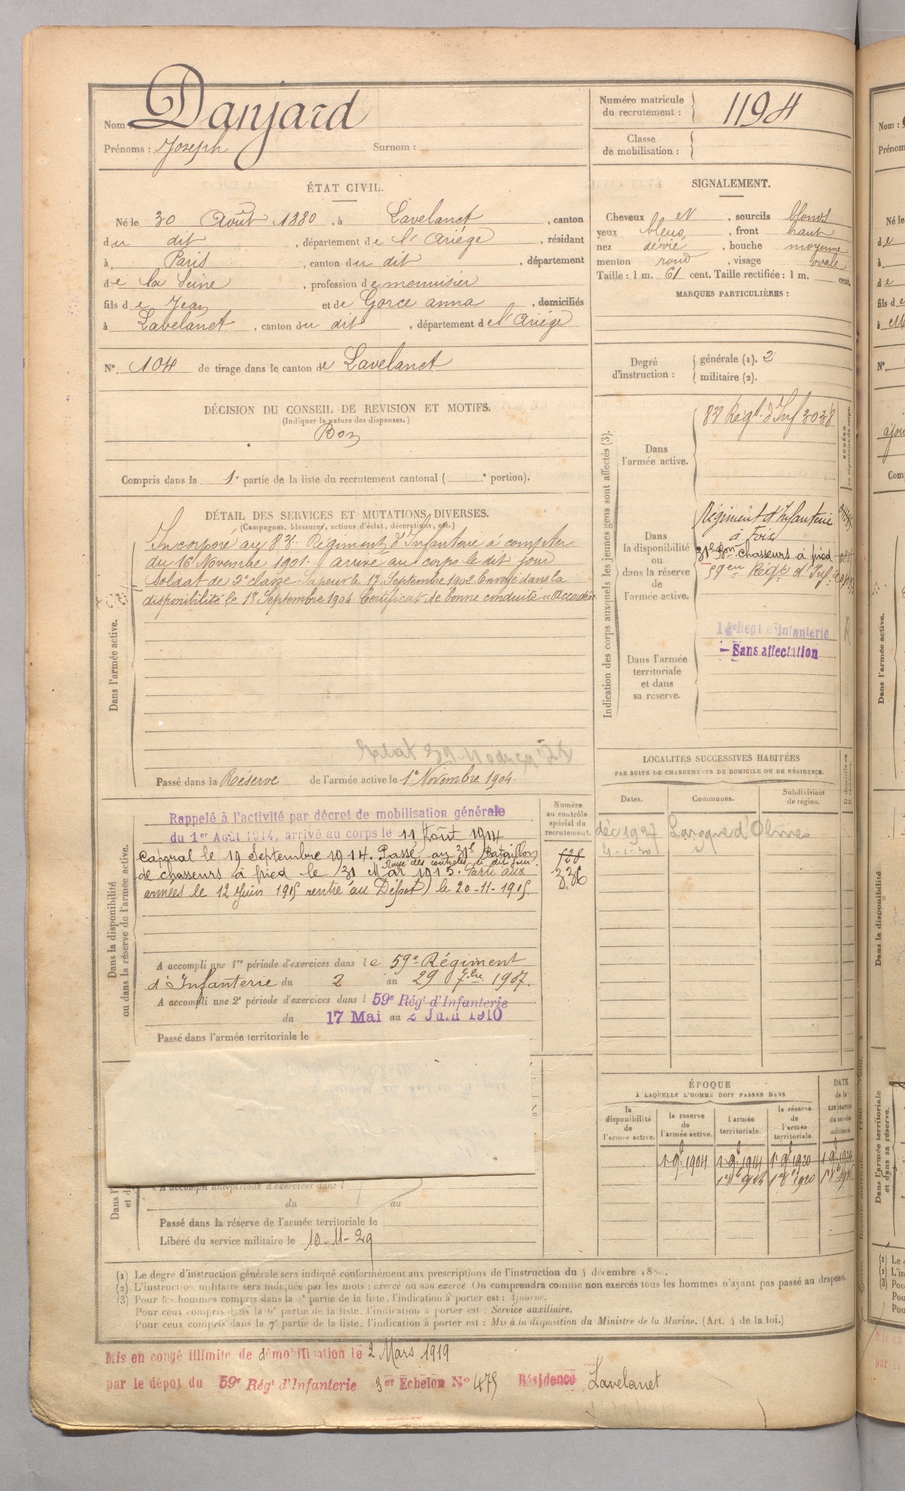 Nom : Danjard
Prénoms : Joseph Surnom :
Numéro matricule
du recrutement : 1194
Classe
de mobilisation :
ÉTAT CIVIL.
Né le 30 Août 1880, à Lavelanet, canton
du dit, département de l'Ariège, résidant
à Paris, canton du dit, département
de la Seine, profession de menuisier
fils de Jean et de Gorce anna, domiciliés
à Lavelanet, canton du dit, département de l'Ariège
N° 104 de tirage dans le canton de Lavelanet
SIGNALEMENT.
Cheveux et, sourcils blonds
yeux bleus, front haut
nez dévié, bouche moyenne
menton rond, visage ovale
Taille : 1 m. 61 cent. Taille rectifiée : 1 m. cent.
MARQUES PARTICULIÈRES :
Degré
d'instruction :
générale (1). 2
militaire (2).
DÉCISION DU CONSEIL DE REVISION ET MOTIFS.
(Indiquer la nature des dispenses.)
Bon
Compris dans la 1e partie de la liste du recrutement cantonal ( e portion).
DÉTAIL DES SERVICES ET MUTATIONS DIVERSES.
(Campagnes, blessures, actions d'éclat, décorations, etc.)
Dans l'armée active.
Incorporé au 83e Régiment d'Infanterie à compter
du 16 Novembre 1901. arrivé au corps le dit jour
soldat de 2e classe. Sapeur le 17 Septembre 1902. Envoyé dans la
disponibilité le 18 Septembre 1904. Certificat de bonne conduite "Accordé".
Passé dans la Réserve de l'armée active le 1er Novembre 1904
Indication des corps auxquels les jeunes gens sont affectés (3).
Dans
l'armée active.
83e Régt d'Inf 3038
Dans
la disponibilité
ou
dans la réserve
de
l'armée active.
Régiment d'Infanterie
à Foix
31e Bon chasseurs à pied
59e Régt d'Inf
Dans l'armée
territoriale
et dans
sa réserve.
Regt d'Infanterie
Sans affectation
LOCALITÉS SUCCESSIVES HABITÉES
PAR SUITE DE CHANGEMENTS DE DOMICILE OU DE RÉSIDENCE.
Dates. Communes. Subdivision
de région.
Laroque d'Olmes
Dans la disponibilité
ou dans la réserve de l'armée active.
Numéro
au contrôle
spécial du
recrutement.
Rappelé à l'activité par décret de mobilisation générale
du 1er Août 1914, arrivé au corps le 11 Août 1914
Caporal le 19 Septembre 1914. Passé au 31e Bataillon
Rayé des contrôles le dit jour.
de chasseurs à pied le 31 Mai 1915. Parti aux
armées le 12 Juin 1915 rentré au Dépôt le 20-11-1915
A accompli une 1re période d'exercices dans le 59e Régiment
d'Infanterie du 2 au 29 7bre 1907.
A accompli une 2e période d'exercices dans l 59e Rég' d'Infanterie
du 17 Mai au 2 Juin 1910
Passé dans l'armée territoriale le
ÉPOQUE
À LAQUELLE L'HOMME DOIT PASSER DANS
DATE
de la
LIBÉRATION
du service
militaire.
la
disponibilité
de
l'armée active.
la réserve
de
l'armée active.
l'armée
territoriale.
la réserve
de
l'armée
territoriale.
du au
Passé dans la réserve de l'armée territoriale le
Libéré du service militaire le 10-11-29
(1) Le degré d'instruction générale sera indiqué conformément aux prescriptions de l'instruction du 4 décembre
(2) L'instruction militaire sera indiquée par les mots : exercé ou non exercé. On comprendra comme non exercés tous les hommes n'ayant pas passé au drapeau.
(3) Pour les hommes compris dans la partie de la liste, l'indication à porter est : Ajourné.
Pour ceux compris dans la 6e partie de la liste, l'indication à porter est : Service auxiliaire.
Pour ceux compris dans la 7e partie de la liste, l'indication à porter est : Mis à la disposition du Ministre de la Marine. (Art. 4 de la loi.)
Mis en congé illimité de démobilisation le 2 Mars 1919
par le dépôt du 59e Rég' d'Infanterie 3me Echelon N° 475 Résidence Lavelanet